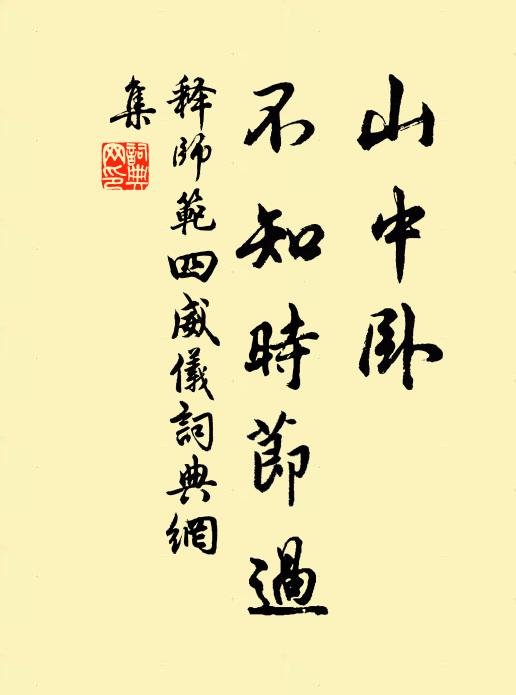 山中卧
不知時節過
释師範四威儀詞典網
集
詞典
网印